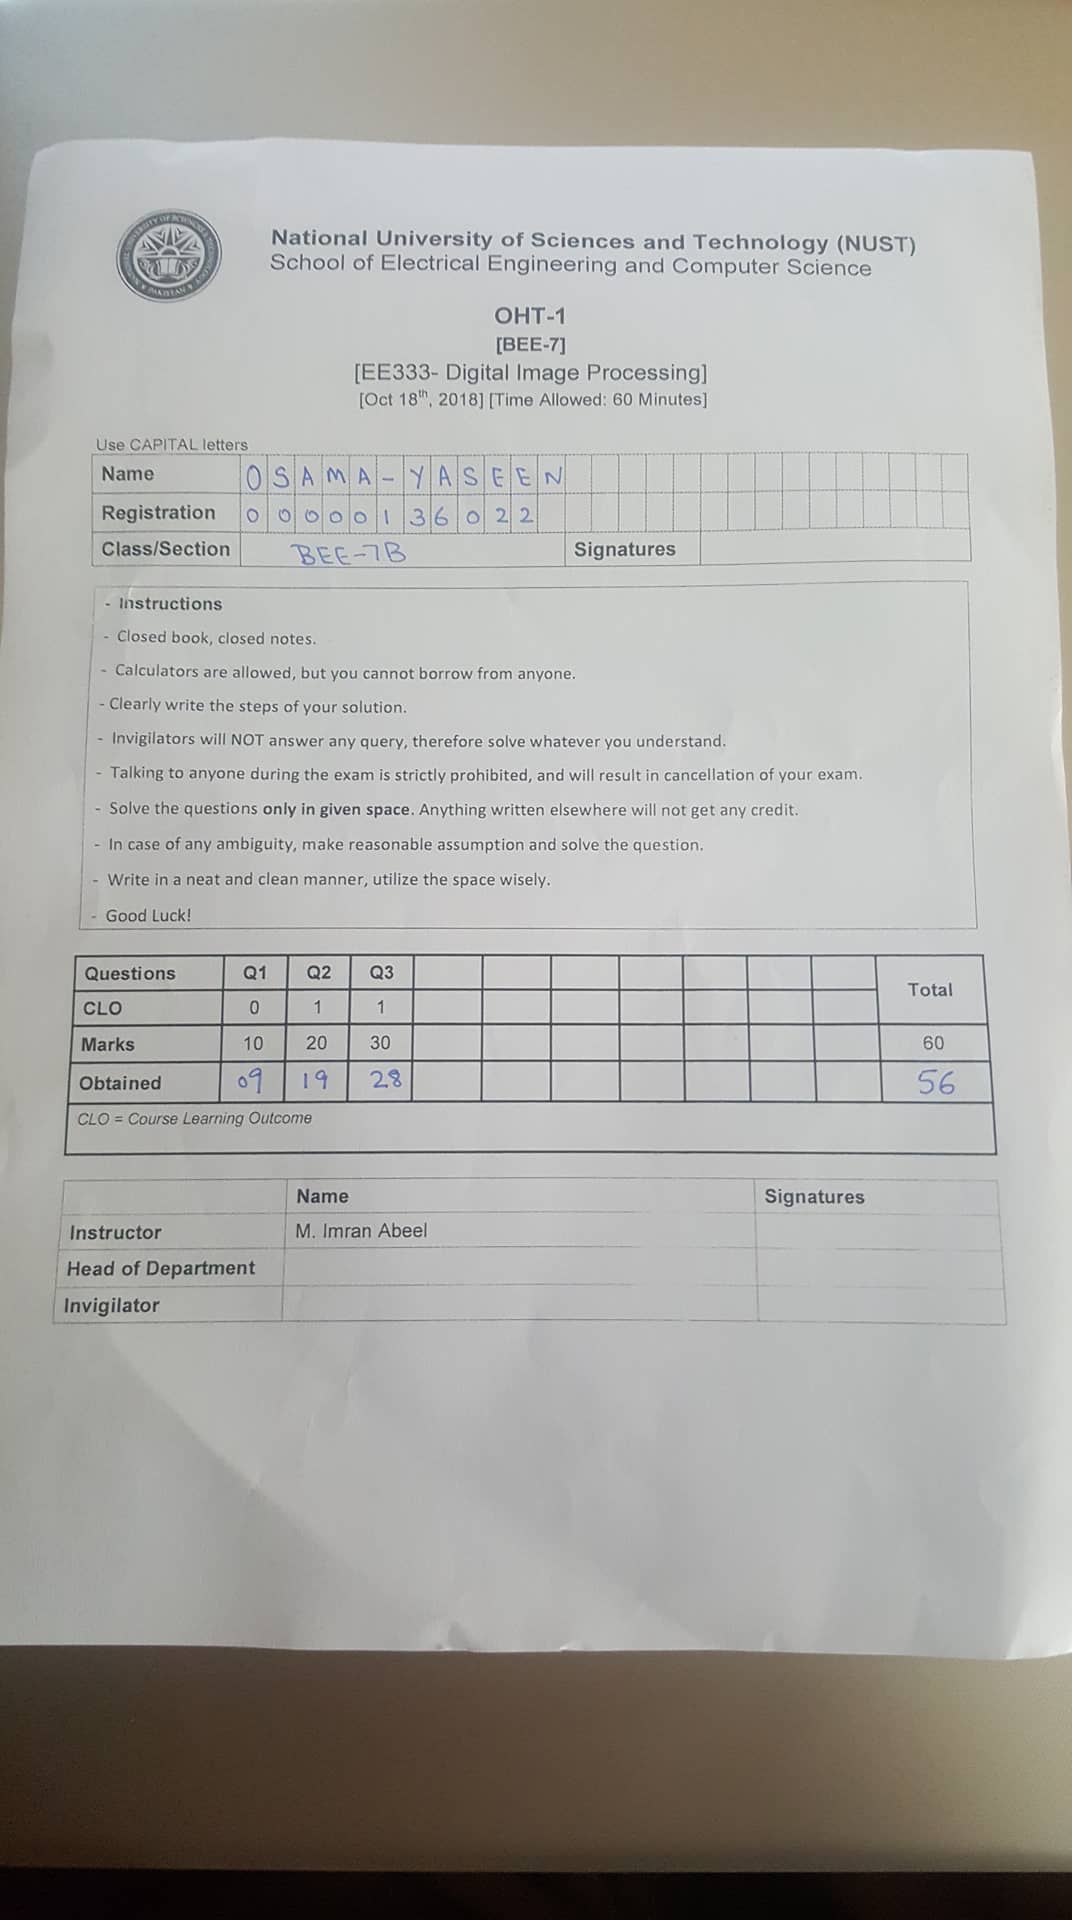 National University of Sciences and Technology (NUST)
School of Electrical Engineering and Computer Science
OHT-1
[BEE-7]
[EE333- Digital Image Processing]
[Oct 18th, 2018] [Time Allowed: 60 Minutes]
Use CAPITAL letters
Name OSAMA-YASEEN
Registration 00000136022
Class/Section BEE-7B Signatures
- Instructions
- Closed book, closed notes.
- Calculators are allowed, but you cannot borrow from anyone.
- Clearly write the steps of your solution.
- Invigilators will NOT answer any query, therefore solve whatever you understand.
- Talking to anyone during the exam is strictly prohibited, and will result in cancellation of your exam.
- Solve the questions only in given space. Anything written elsewhere will not get any credit.
- In case of any ambiguity, make reasonable assumption and solve the question.
- Write in a neat and clean manner, utilize the space wisely.
- Good Luck!
Questions Q1 Q2 Q3 Total
CLO 0 1 1
Marks 10 20 30 60
Obtained 09 19 28 56
CLO = Course Learning Outcome
Name Signatures
Instructor M. Imran Abeel
Head of Department
Invigilator